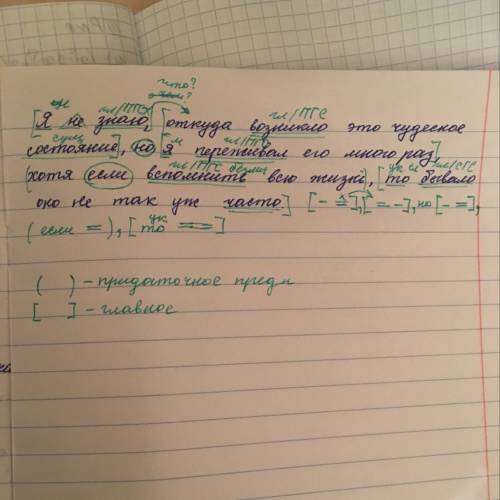 что?
гл/ПГС
[Я не знаю, [откуда возникло это чудесное
сущ гл/ПГС
состояние], но я переживал его много раз]
гл/ПГС безлич ук сл гл/СГС
(хотя если вспомнить всю жизнь), [то бывало
оно не так уж часто.] [- =], [= -], но [- =],
ук
(если =), [то =]
( ) - придаточное предл
[ ] - главное